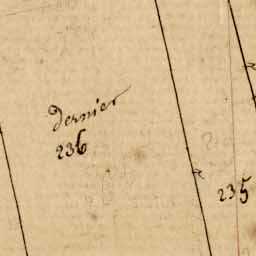 Dernier
236
235